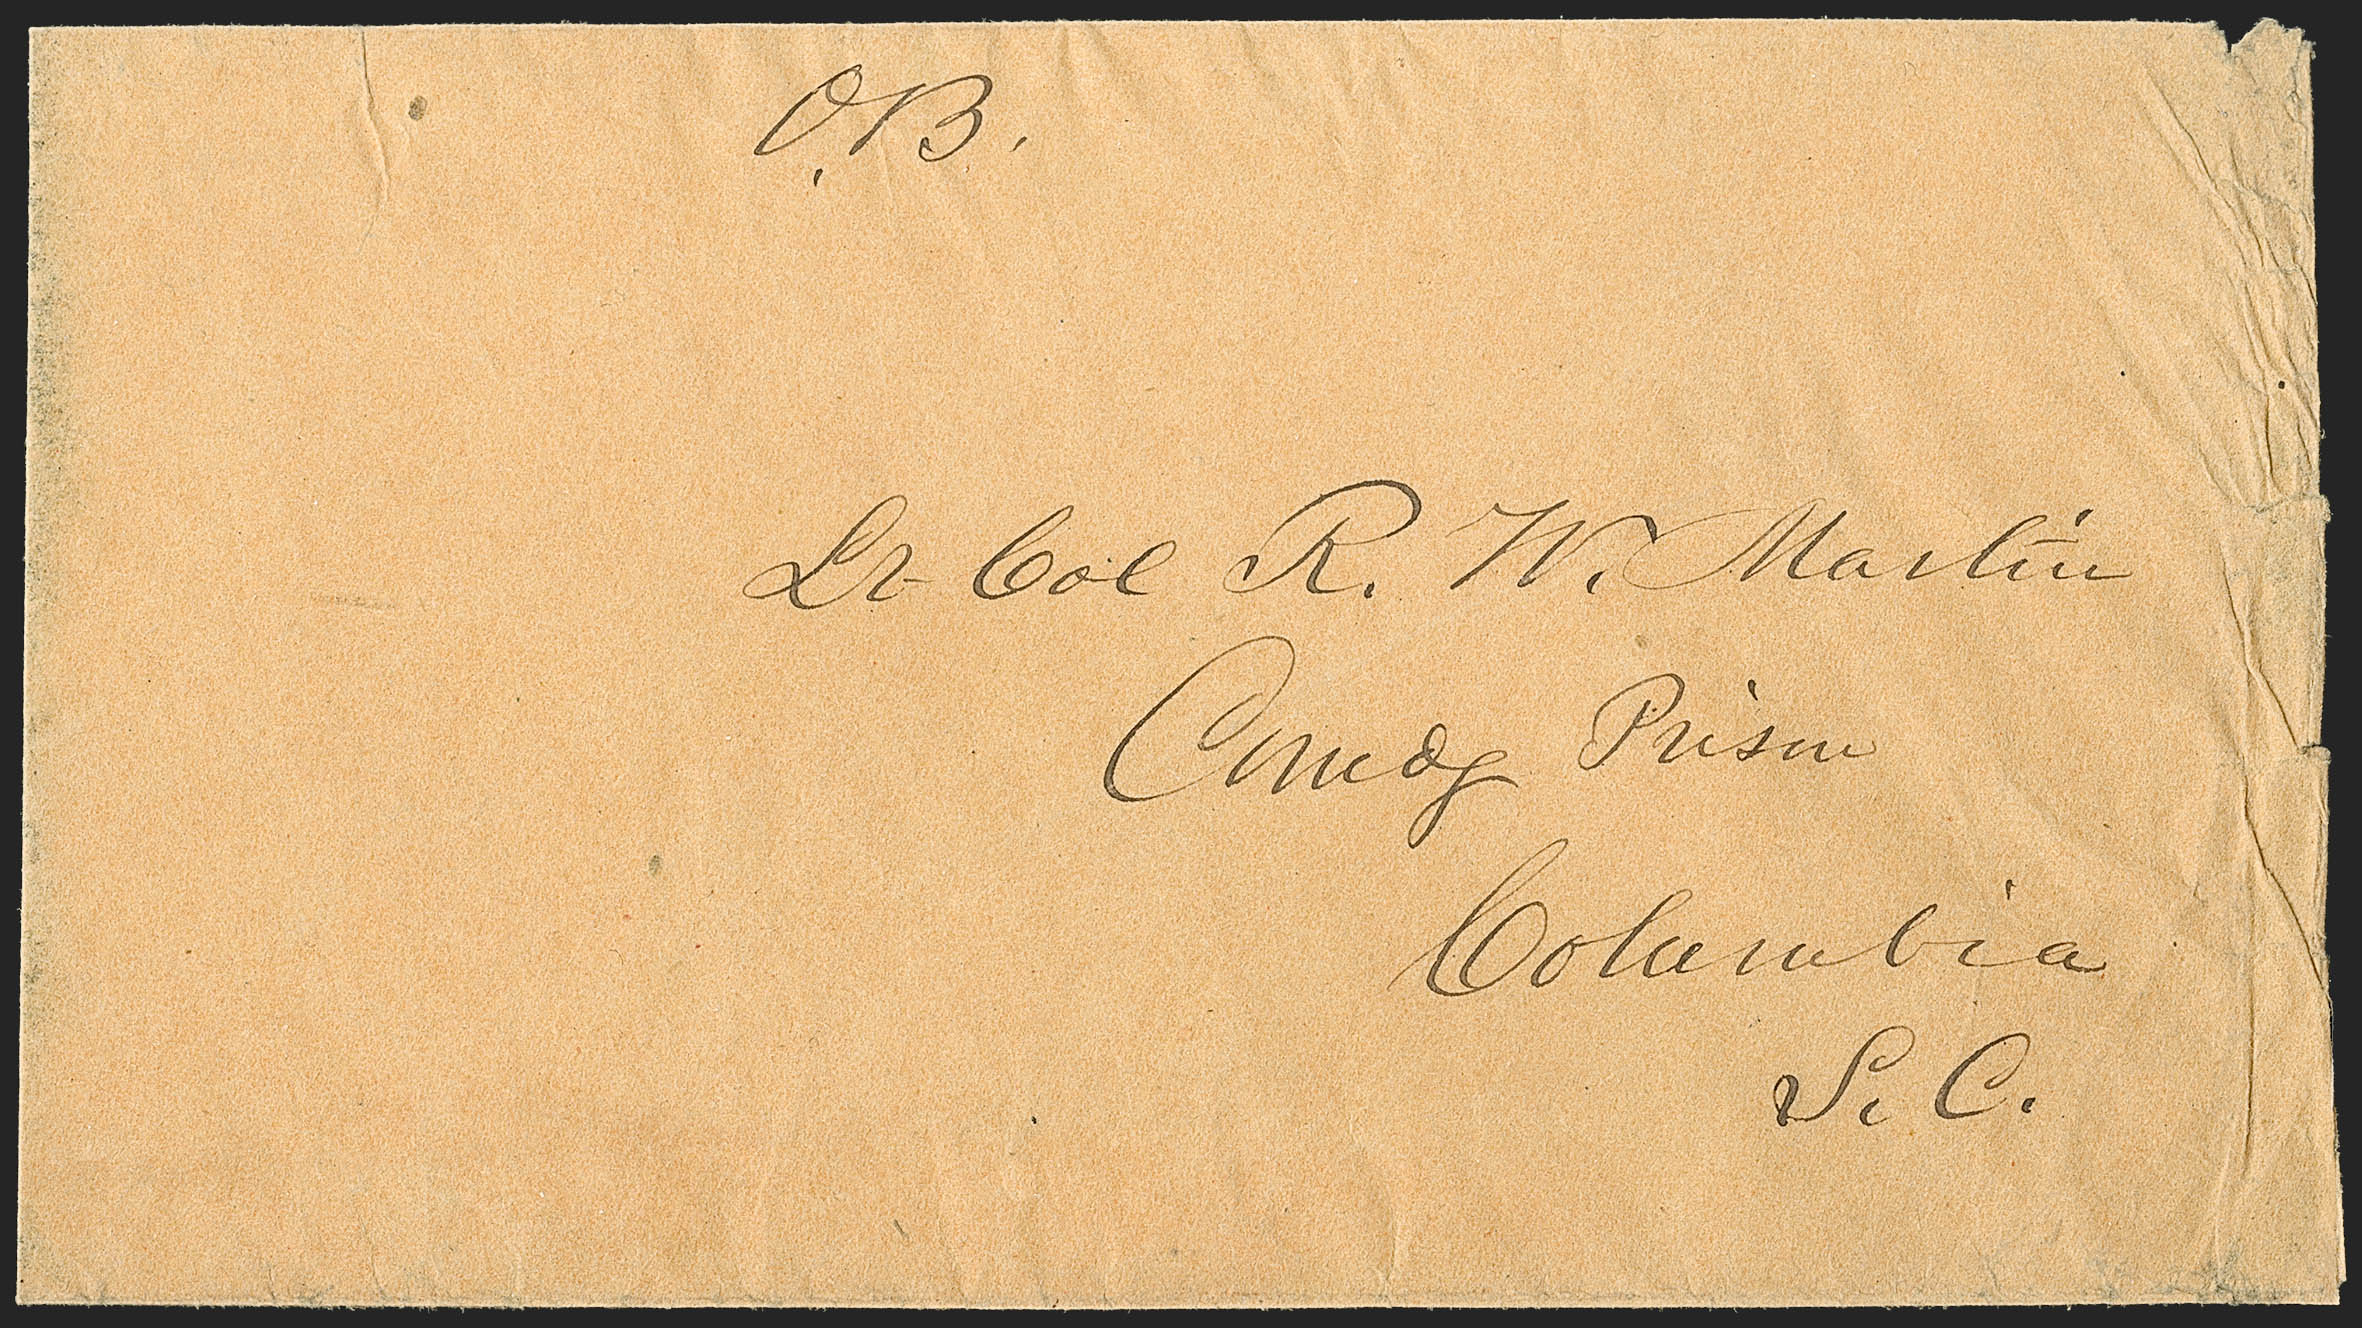 O.B.
Lt Col R. W. Martin
Comdg Prison
Columbia
S. C.